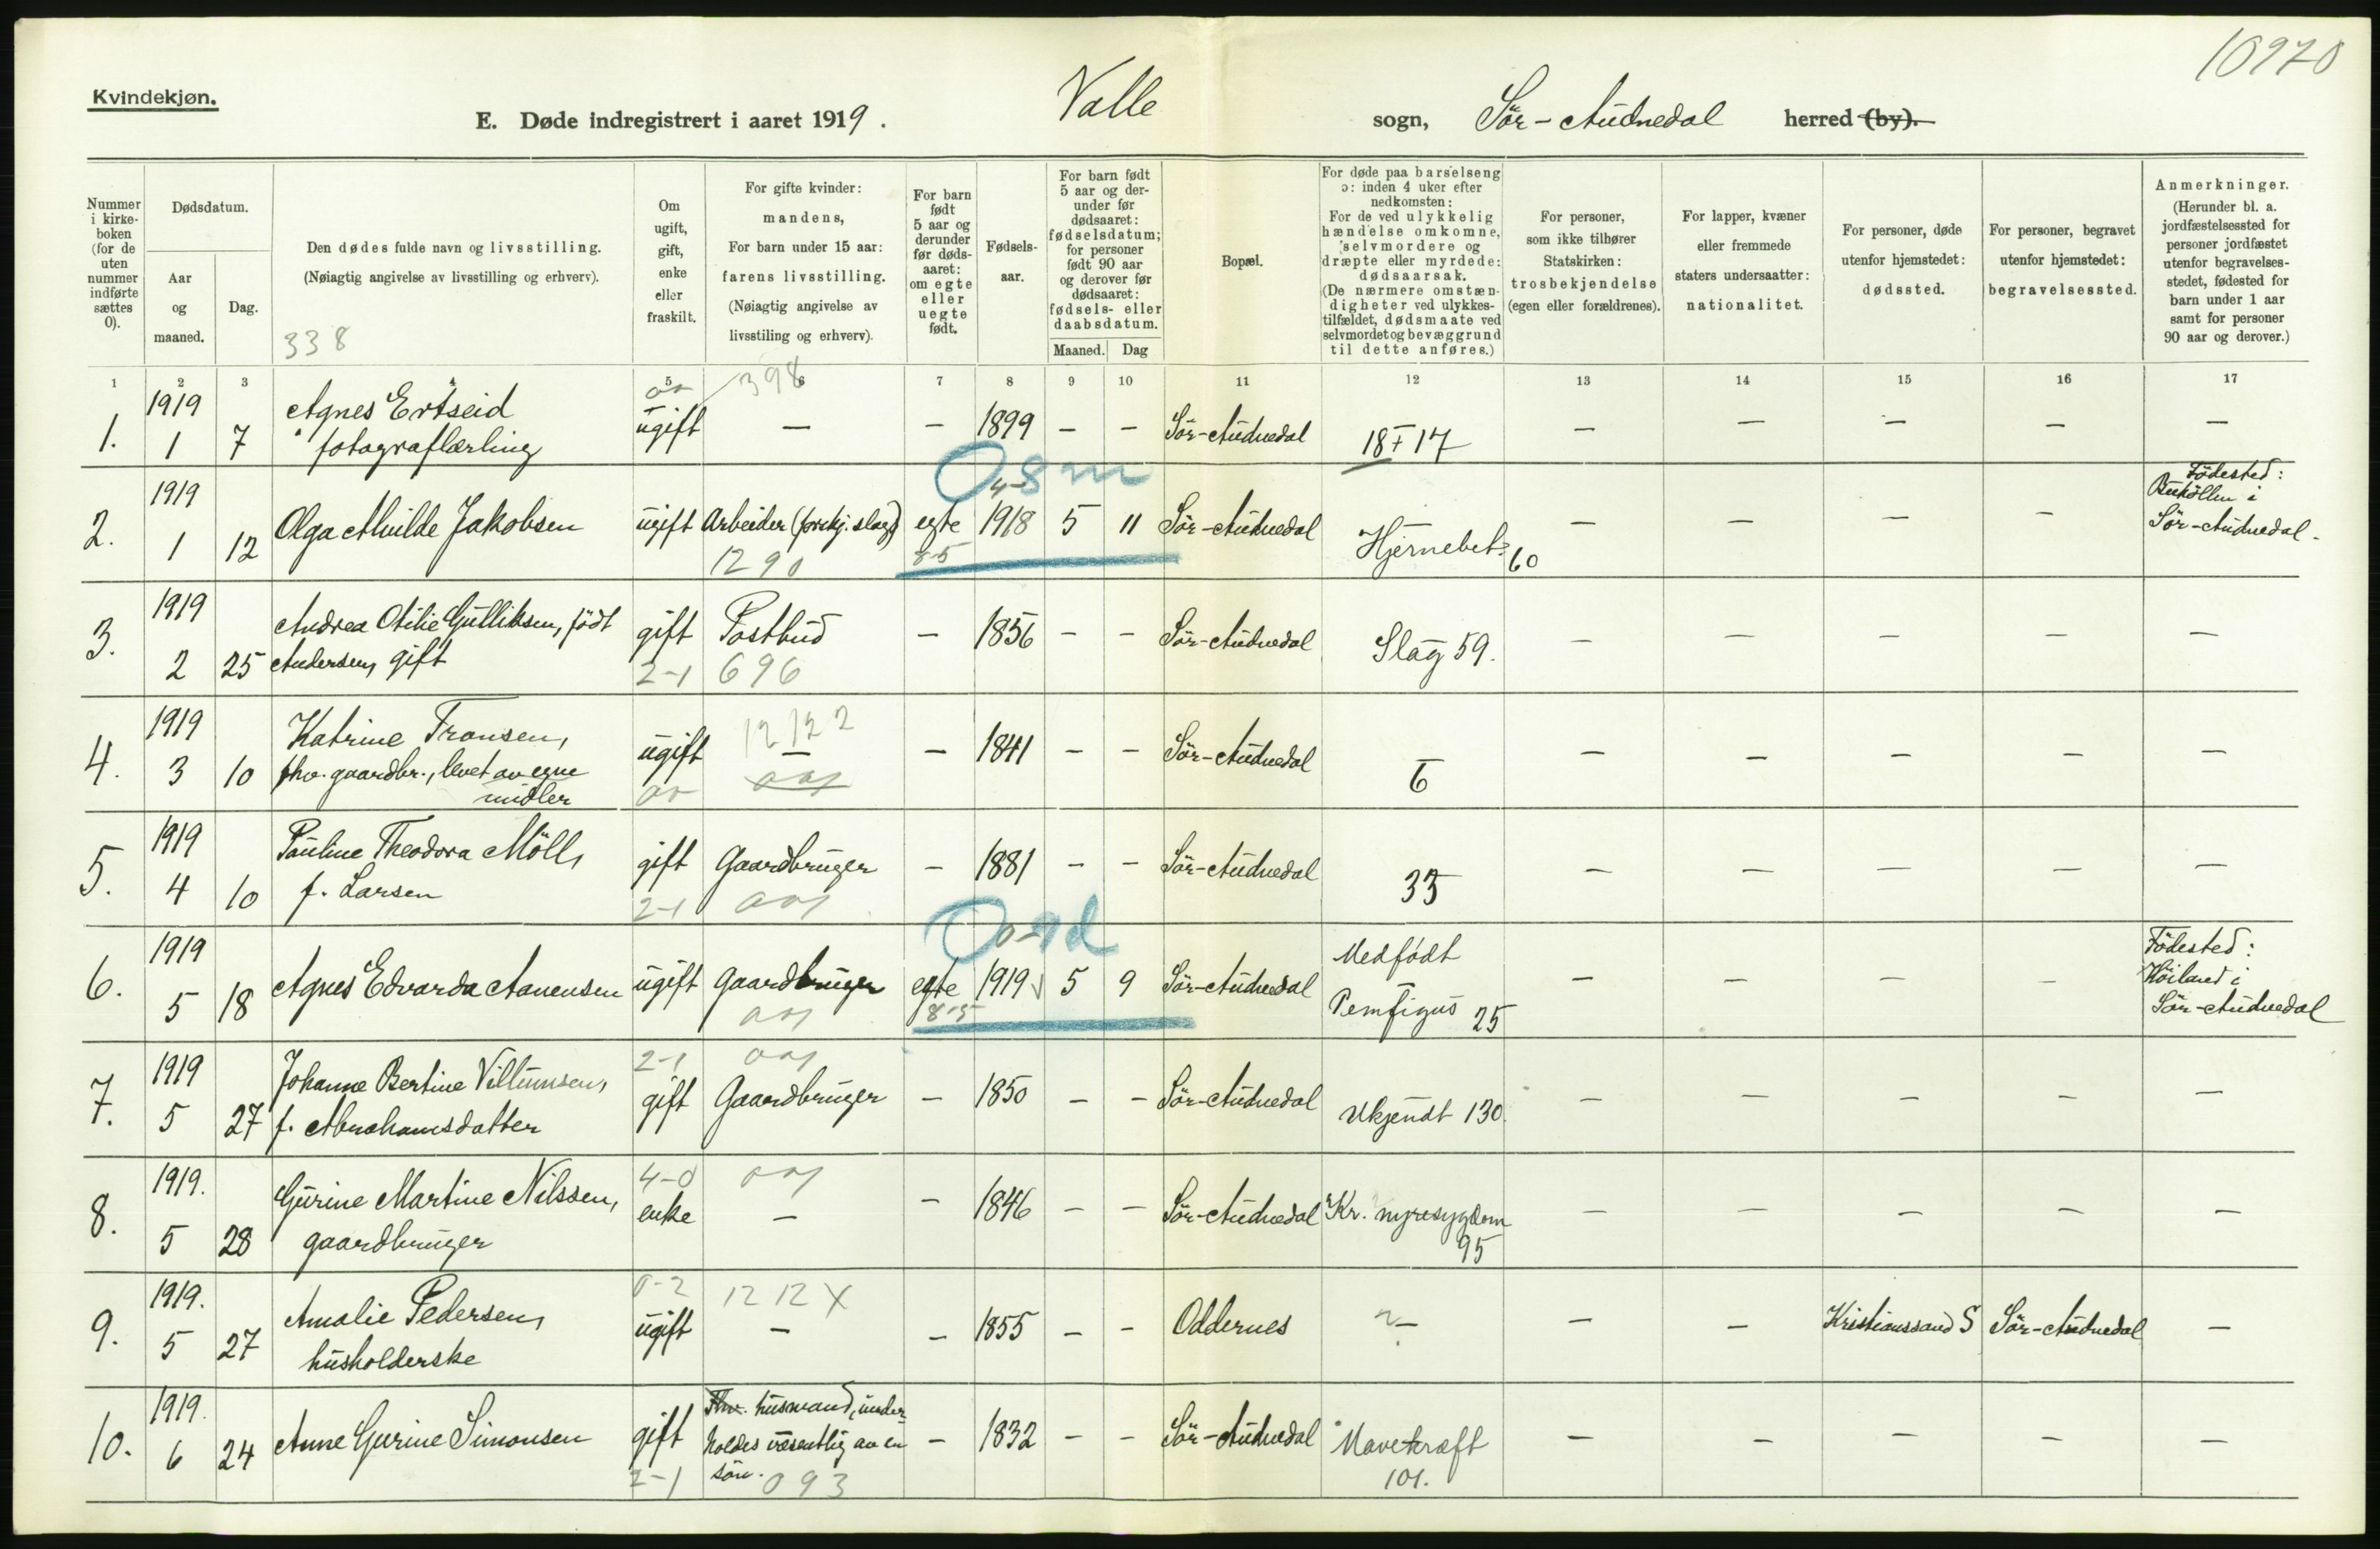 10970
Kvindekjøn.
E. Døde indregistrert i aaret 1919. Valle sogn, Sör-Audnedal herred (by).
Nummer i kirke-boken (for de uten nummer indførte sættes 0).
Dødsdatum.
Aar og maaned.
Dag.
Den dødes fulde navn og livsstilling.
(Nøiagtig angivelse av livsstilling og erhverv).
338
Om ugift, gift, enke eller fraskilt.
For gifte kvinder:
mandens,
For barn under 15 aar:
farens livsstilling.
(Nøiagtig angivelse av
livsstiling og erhverv).
For barn født 5 aar og derunder før døds-aaret: om egte eller uegte født.
Fødsels-aar.
For barn født 5 aar og der-under før dødsaaret: fødselsdatum; for personer født 90 aar og derover før dødsaaret: fødsels- eller daabsdatum.
Maaned. Dag
Bopæl.
For døde paa barselseng
ɔ: inden 4 uker efter
nedkomsten:
For de ved ulykkelig
hændelse omkomne,
selvmordere og
dræpte eller myrdede:
dødsaarsak.
(De nærmere omstæn-
digheter ved ulykkes-
tilfældet, dødsmaate ved
selvmordet og bevæggrund
til dette anføres.)
For personer,
som ikke tilhører
Statskirken:
trosbekjendelse
(egen eller forældrenes).
For lapper, kvæner
eller fremmede
staters undersaatter:
nationalitet.
For personer, døde
utenfor hjemstedet:
dødssted.
For personer, begravet
utenfor hjemstedet:
begravelsessted.
Anmerkninger.
(Herunder bl. a.
jordfæstelsessted for
personer jordfæstet
utenfor begravelses-
stedet, fødested for
barn under 1 aar
samt for personer
90 aar og derover.)
1 2 3 4 5 6 7 8 9 10 11 12 13 14 15 16 17
398
1. 1919 1 7 Agnes Ertseid fotograflærling ugift — — 1899 — — Sör-Audnedal 18 + 17 — — — — —
0 4-8 m
2. 1919 1 12 Olga Mhilde Jakobsen ugift Arbeider (forskj. slags) egte 1918 5 11 Sör-Audnedal Hjernebet. 60 — — — — Födested: i Sör-Audnedal.
1290 85
3. 1919 2 25 Andrea Otilie Gulliksen, födt Andersen, gift gift Postbud — 1856 — — Sör-Audnedal Slag 59. — — — — —
2-1 696
4. 1919 3 10 Katrine Fransen, fhv. gaardbr., levet av egne midler ugift — — 1841 — — Sör-Audnedal 6 — — — — —
12122
5. 1919 4 10 Pauline Theodora Möll, f. Larsen gift Gaardbruger — 1881 — — Sör-Audnedal 33 — — — — —
2-1
0 0-9 d
6. 1919 5 18 Agnes Edvarda Aanensen ugift Gaardbruger egte 1919 5 9 Sör-Audnedal Medfödt Pemfigus 25 — — — — Födested: Höiland i Sör-Audnedal
85
7. 1919 5 27 Johanne Bertine Villumsen, f. Abrahamsdatter 2-1 gift Gaardbruger — 1850 — — Sör-Audnedal Ukjendt 130. — — — — —
8. 1919. 5 28 Gurine Martine Nilssen, gaardbruger 4-0 enke — — 1846 — — Sör-Audnedal Kr. nyresygdom 95 — — — — —
9. 1919. 5 27 Amalie Pedersen, husholderske 0-2 ugift 1212X — — 1855 — — Oddernes — — — Kristianssand S Sör-Audnedal —
10. 1919. 6 24 Anne Gurine Simonsen gift Fhv. husmand, under-
holdes væsentlig av en
sön. — 1832 — — Sör-Audnedal Mavekræft 101. — — — — —
2-1 093